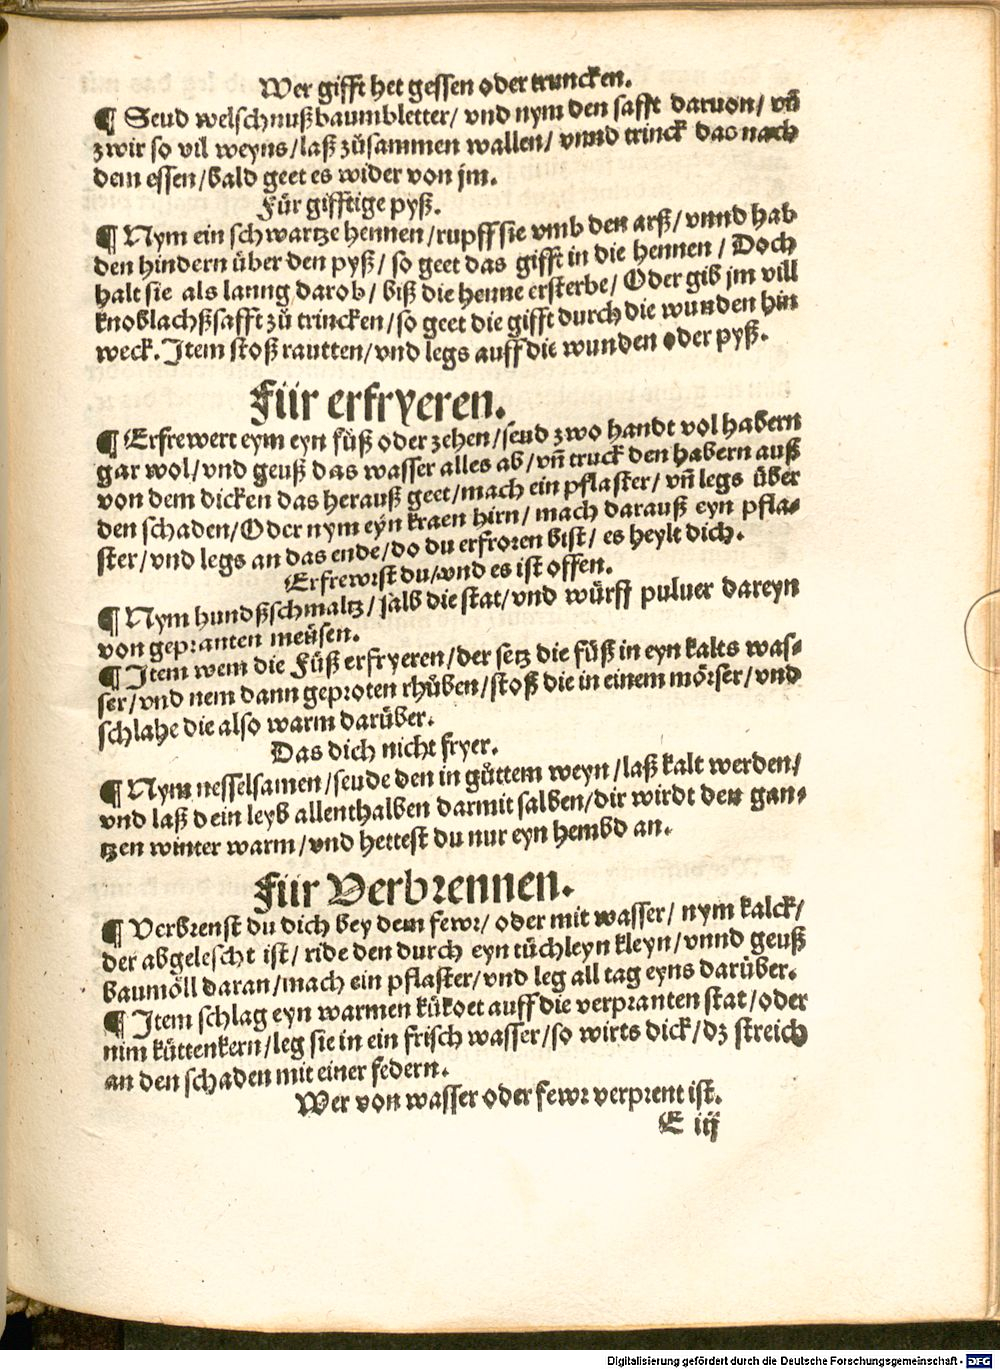 Wer gifft het gessen oder truncken.
¶ Seud welschnußbaumbletter/ vnd nym den safft daruon/ vñ
zwir so vil weyns/laß zůsammen wallen/ vnnd trinck das nach
dem essen/bald geet es wider von jm.
Für gifftige pyß.
¶ Nym ein schwartze hennen/rupff sie vmb den arß/vnnd hab
den hindern über den pyß/ so geet das gifft in die hennen/ Doch
halt sie als lanng darob/ biß die henne ersterbe/ Oder gib jm vill
knoblachßsafft zů trincken/so geet die gifft durch die wunden hin
weck. Item stoß rautten/vnd legs auff die wunden oder pyß.
Für erfryeren.
¶ Erfrewert eym eyn fůß oder zehen/seud zwo handt vol habern
gar wol/vnd geuß das wasser alles ab/vñ truck den habern auß
von dem dicken das herauß geet/mach ein pflaster/ vñ legs über
den schaden/Oder nym eyn kraen hirn/ mach darauß eyn pfla-
ster/vnd legs an das ende/do du erfroren bist/ es heylt dich.
Erfrewrst du/vnd es ist offen.
¶ Nym hundßschmaltz/salb die stat/vnd würff puluer dareyn
von gepranten meüsen.
¶ Item wem die Füß erfryeren/der setz die füß in eyn kalts was-
ser/vnd nem dann geproten rhůben/stoß die in einem mörser/vnd
schlahe die also warm darüber.
Das dich nicht fryer.
¶ Nym nesselsamen/seude den in gůttem weyn/laß kalt werden/
vnd laß dein leyb allenthalben darmit salben/dir wirdt den gan-
tzen winter warm/vnd hettest du nur eyn hembd an.
Für Verbrennen.
¶ Verbrenst du dich bey dem fewr/ oder mit wasser/ nym kalck/
der abgelescht ist/ ride den durch eyn tüchleyn kleyn/vnnd geuß
baumöll daran/mach ein pflaster/vnd leg all tag eyns darüber.
¶ Item schlag eyn warmen kükoet auff die verpranten stat/oder
nim küttenkern/leg sie in ein frisch wasser/so wirts dick/dz streich
an den schaden mit einer federn.
Wer von wasser oder fewr verprent ist.
E iij
Digitalisierung gefördert durch die Deutsche Forschungsgemeinschaft - DFG